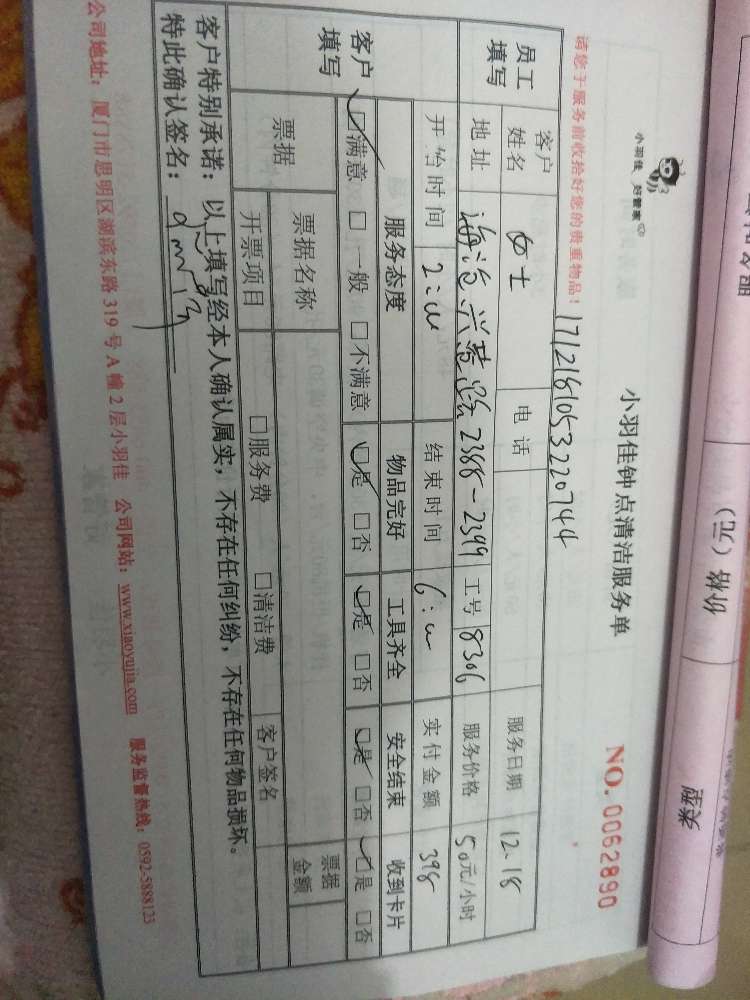 小羽佳 好管家
小羽佳钟点清洁服务单
NO. 0062890
请您于服务前收拾好您的贵重物品！
1712181053220744
员工填写
客户姓名 女士 电话 服务日期 12.18
地址 2388-2399 工号 8306 服务价格 50元/小时
开始时间 结束时间 实付金额 398
客户填写
服务态度 物品完好 工具齐全 安全结束 收到卡片
☑满意 □一般 □不满意 ☑是 □否 ☑是 □否 ☑是 □否 ☑是 □否
票据 票据名称 票据金额
开票项目 □服务费 □清洁费 客户签名
客户特别承诺：以上填写经本人确认属实，不存在任何纠纷，不存在任何物品损坏。
特此确认签名：
公司地址：厦门市思明区湖滨东路319号A幢2层小羽佳 公司网站：www.xiaoyujia.com 服务监督热线：0592-5888123
价格（元）